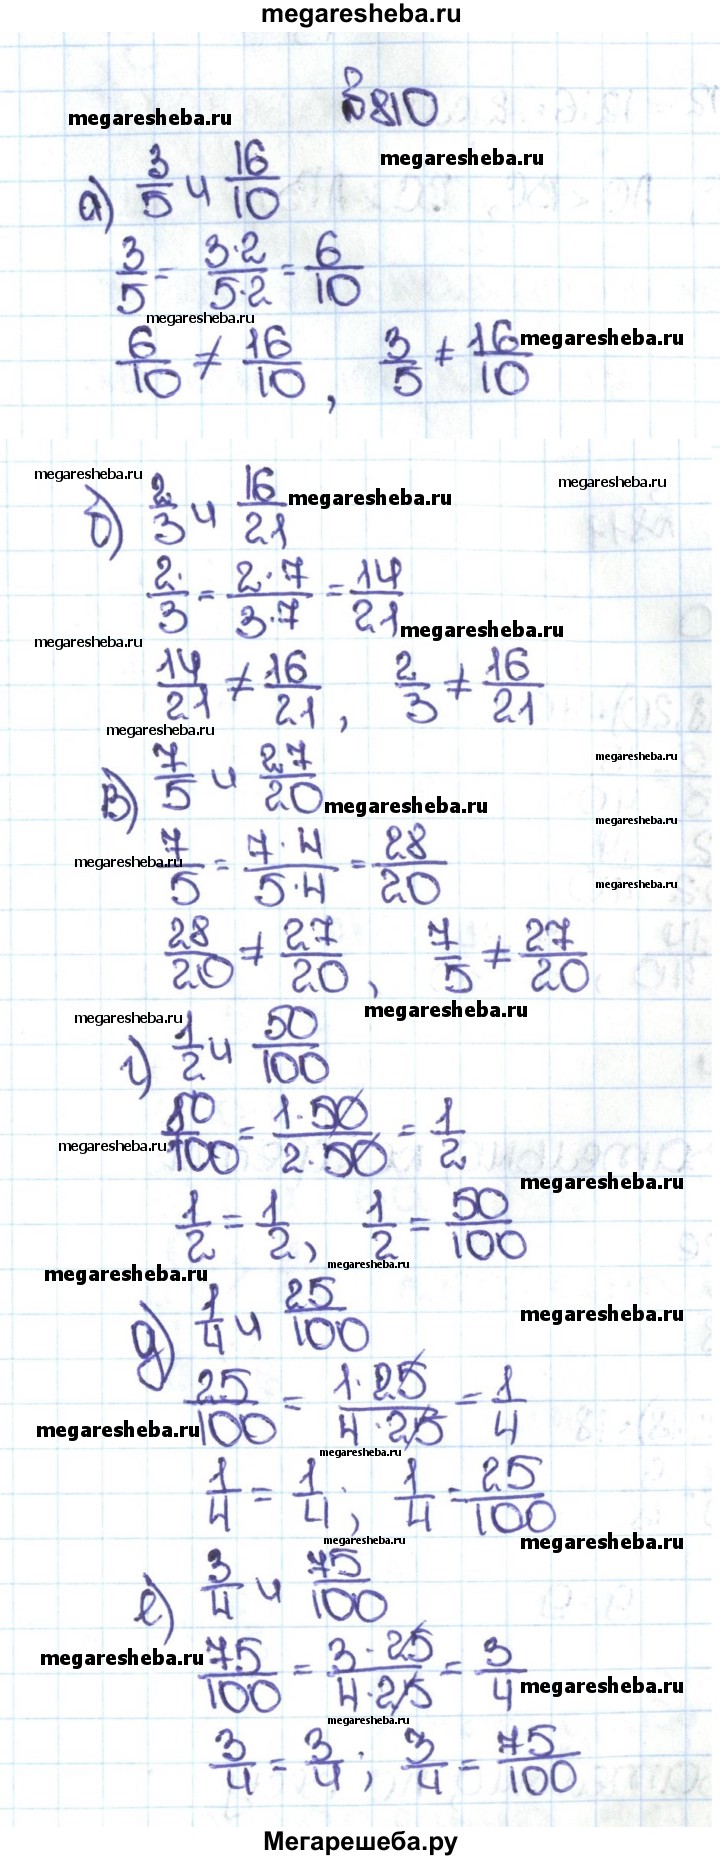 megaresheba.ru
№810
megaresheba.ru
megaresheba.ru
а) 3/5 и 16/10
3/5 = 3·2/5·2 = 6/10
megaresheba.ru
6/10 ≠ 16/10, 3/5 ≠ 16/10
megaresheba.ru
megaresheba.ru
б) 2/3 и 16/21
megaresheba.ru
megaresheba.ru
2/3 = 2·7/3·7 = 14/21
megaresheba.ru
megaresheba.ru
14/21 ≠ 16/21, 2/3 ≠ 16/21
megaresheba.ru
в) 7/5 и 27/20
megaresheba.ru
megaresheba.ru
megaresheba.ru
7/5 = 7·4/5·4 = 28/20
megaresheba.ru
megaresheba.ru
28/20 ≠ 27/20, 7/5 ≠ 27/20
megaresheba.ru
megaresheba.ru
г) 1/2 и 50/100
50/100 = 1·50/2·50 = 1/2
megaresheba.ru
megaresheba.ru
1/2 = 1/2, 1/2 = 50/100
megaresheba.ru
megaresheba.ru
д) 1/4 и 25/100
megaresheba.ru
25/100 = 1·25/4·25 = 1/4
megaresheba.ru
megaresheba.ru
1/4 = 1/4; 1/4 = 25/100
megaresheba.ru
megaresheba.ru
е) 3/4 и 75/100
megaresheba.ru
75/100 = 3·25/4·25 = 3/4
megaresheba.ru
megaresheba.ru
3/4 = 3/4; 3/4 = 75/100
Мегарешеба.ру